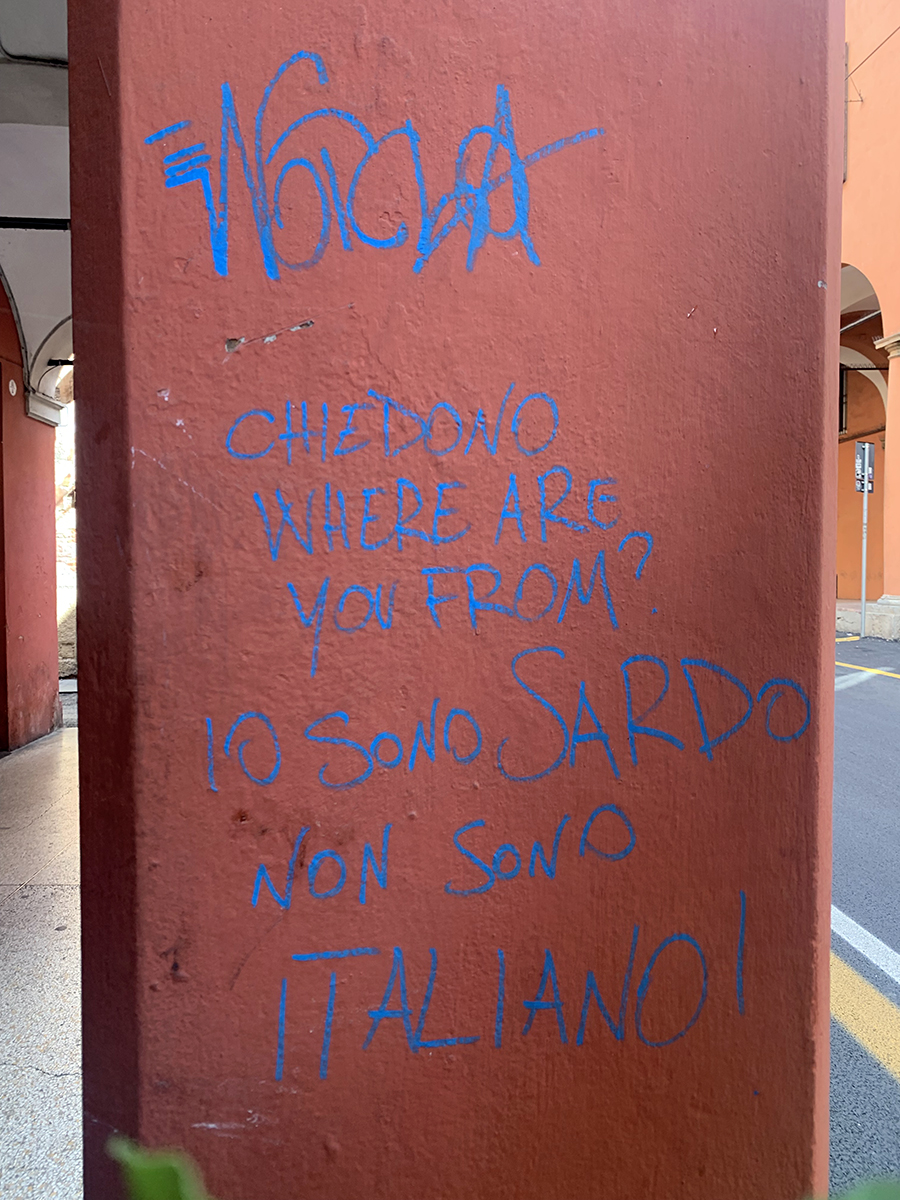 CHIEDONO
WHERE ARE
YOU FROM?
IO SONO SARDO
NON SONO
ITALIANO!